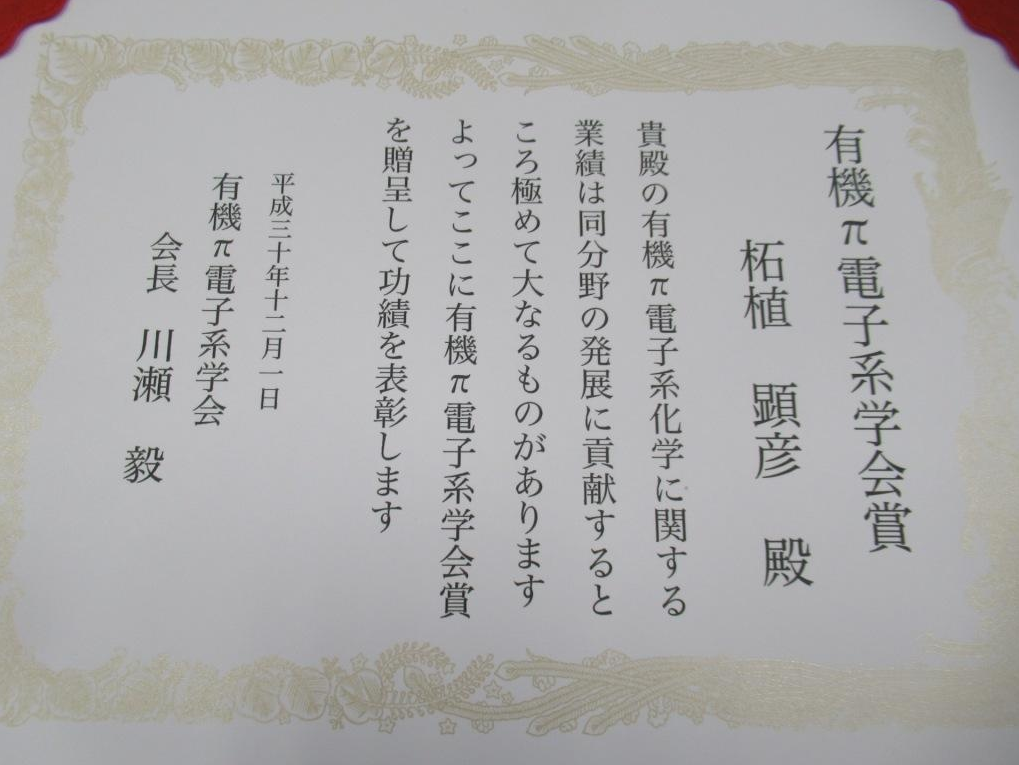 有機π電子系学会賞
柘植 顕彦 殿
貴殿の有機π電子系化学に関する
業績は同分野の発展に貢献すると
ころ極めて大なるものがあります
よってここに有機π電子系学会賞
を贈呈して功績を表彰します
平成三十年十二月一日
有機π電子系学会
会長 川瀬 毅